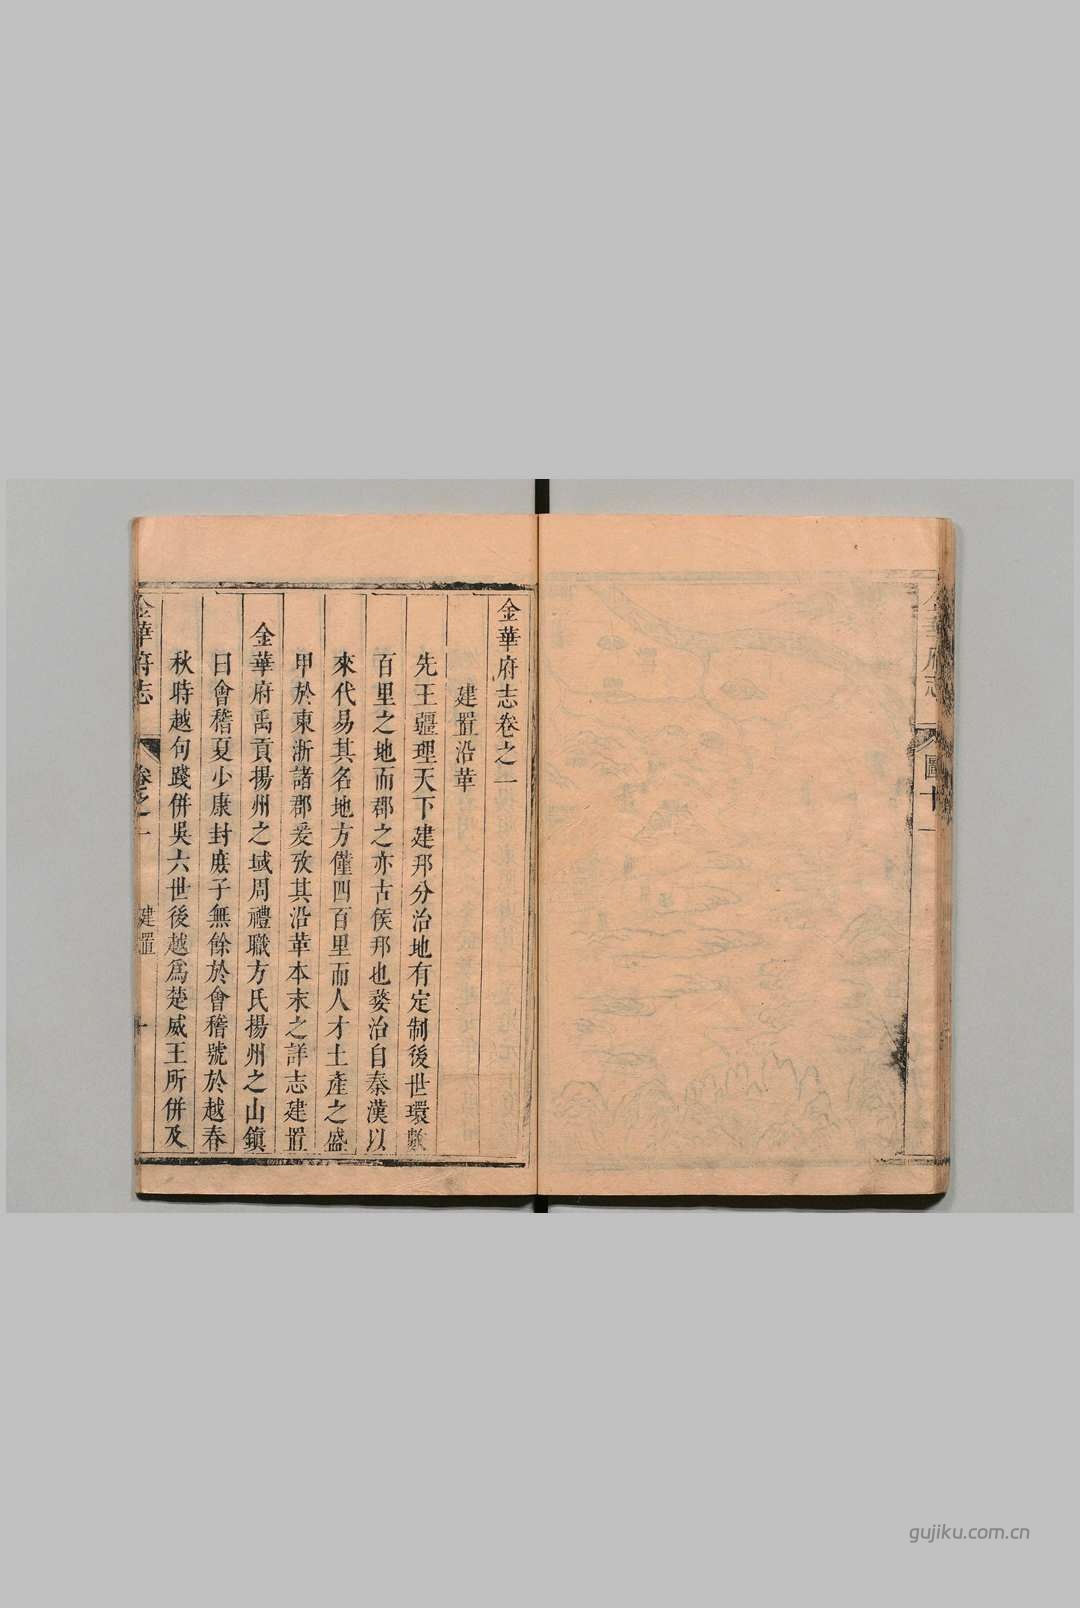 金華府志
圖十一
金華府志卷之一
建置沿革
先王疆理天下建邦分治地有定制後世環數
百里之地而郡之亦古侯邦也婺治自秦漢以
來代易其名地方僅四百里而人才土產之盛
甲於東浙諸郡爰攷其沿革本末之詳志建置
金華府禹貢揚州之域周禮職方氏揚州之山鎮
曰會稽夏少康封庶子無餘於會稽號於越春
秋時越句踐併吳六世後越爲楚威王所併及
金華府志
卷之一
建置
一
gujiku.com.cn